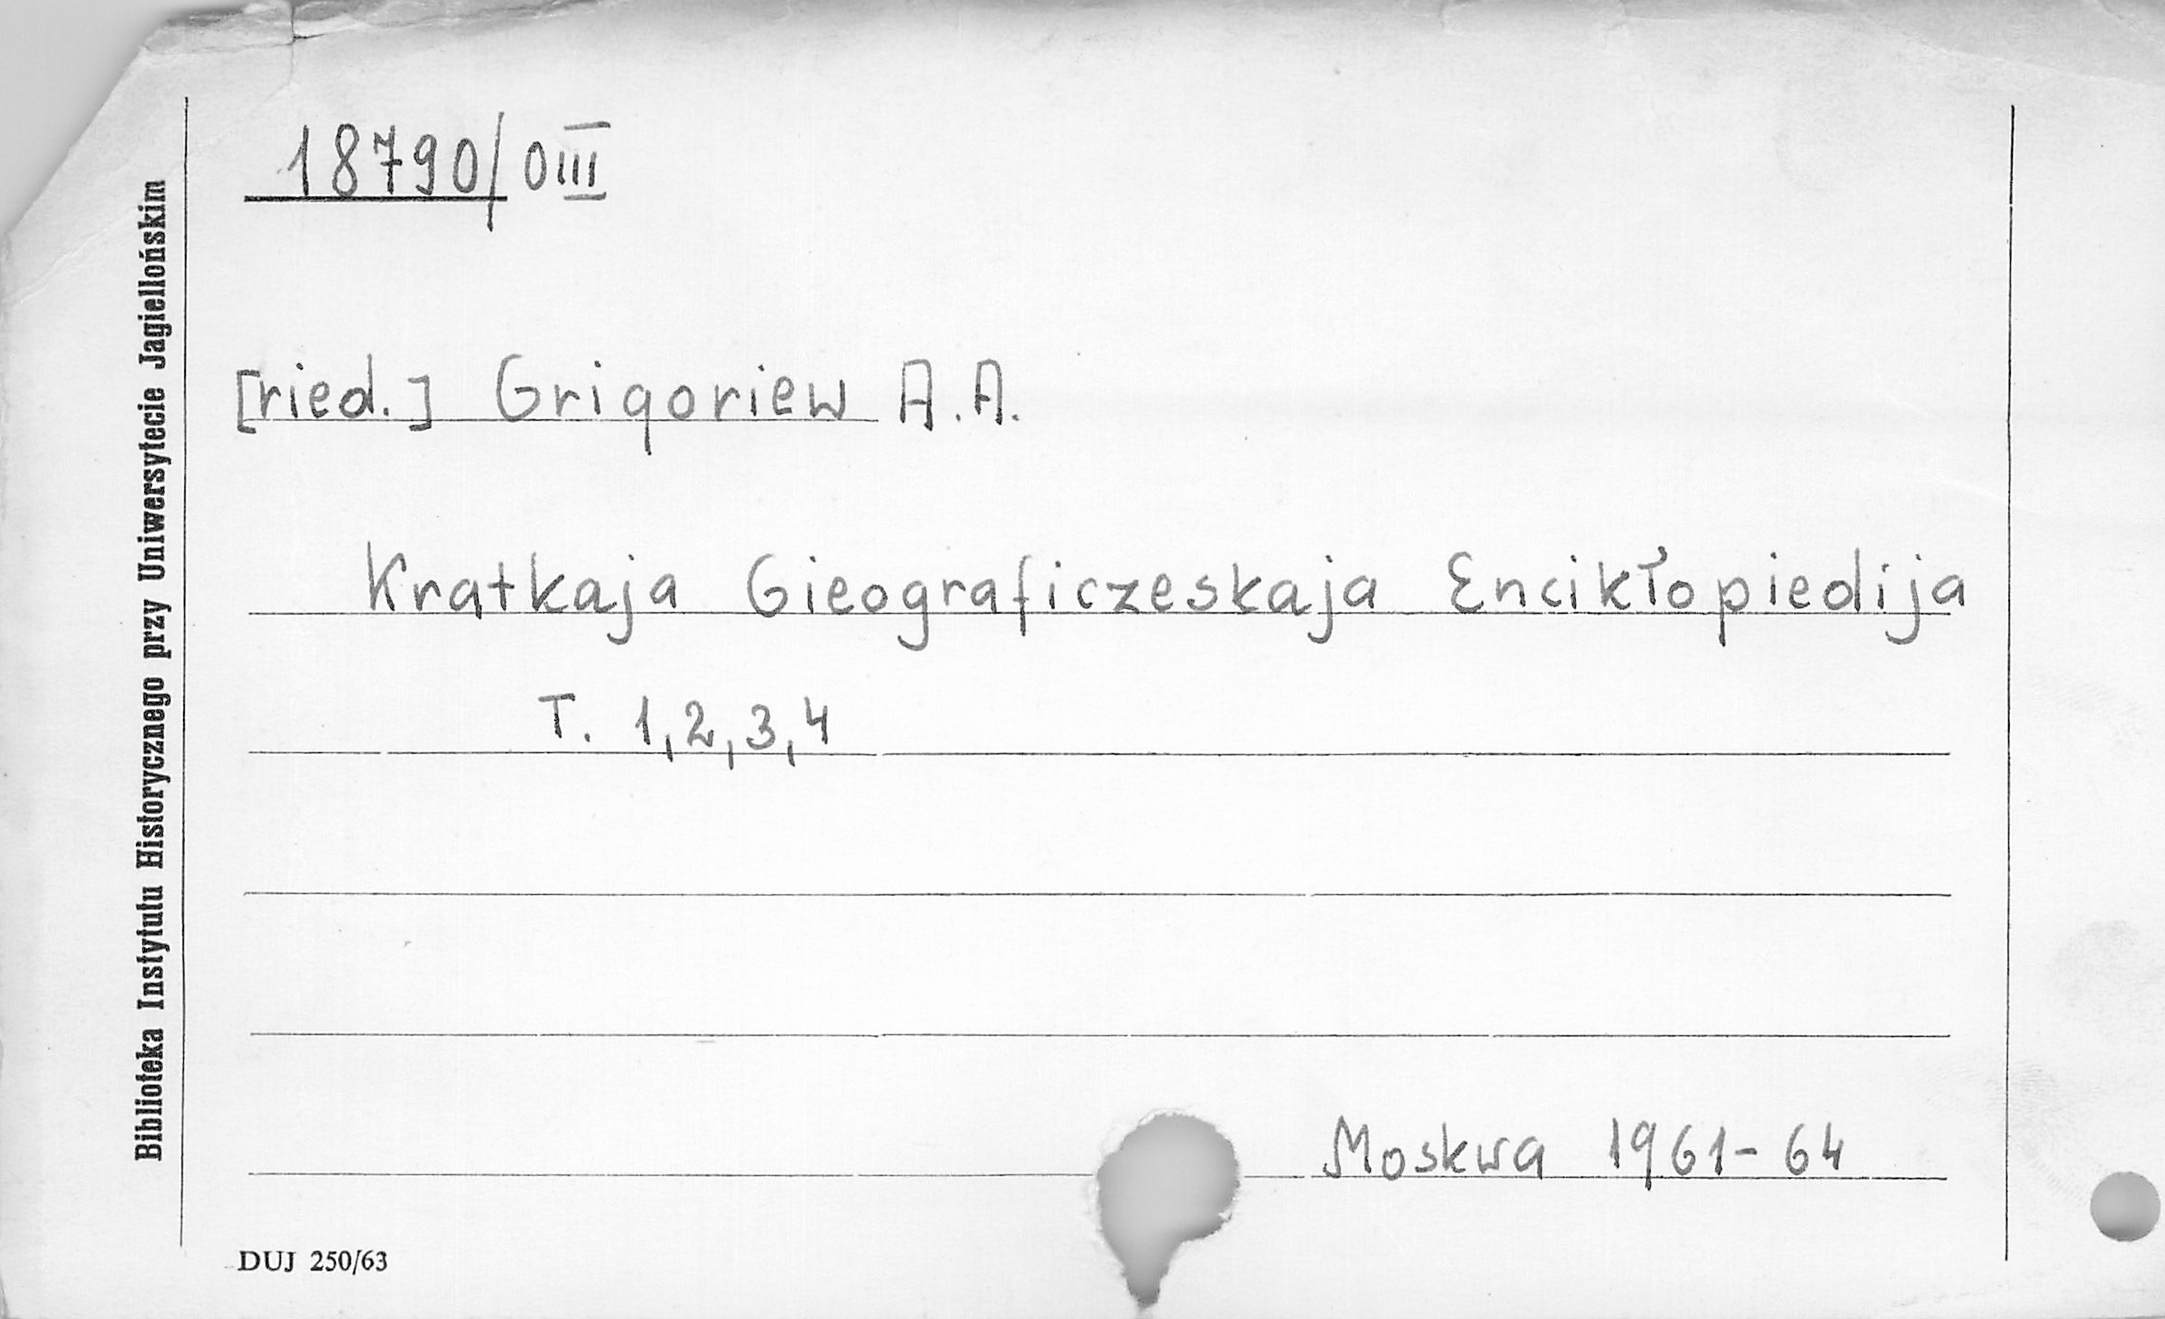 18790/OIII
[ried.] Grigoriew A.A.
Kratkaja Gieograficzeskaja Encikłopiedija
T. 1,2,3,4
Moskwa 1961-64
DUJ 250/63
Biblioteka Instytutu Historycznego przy Uniwersytecie Jagiellońskim